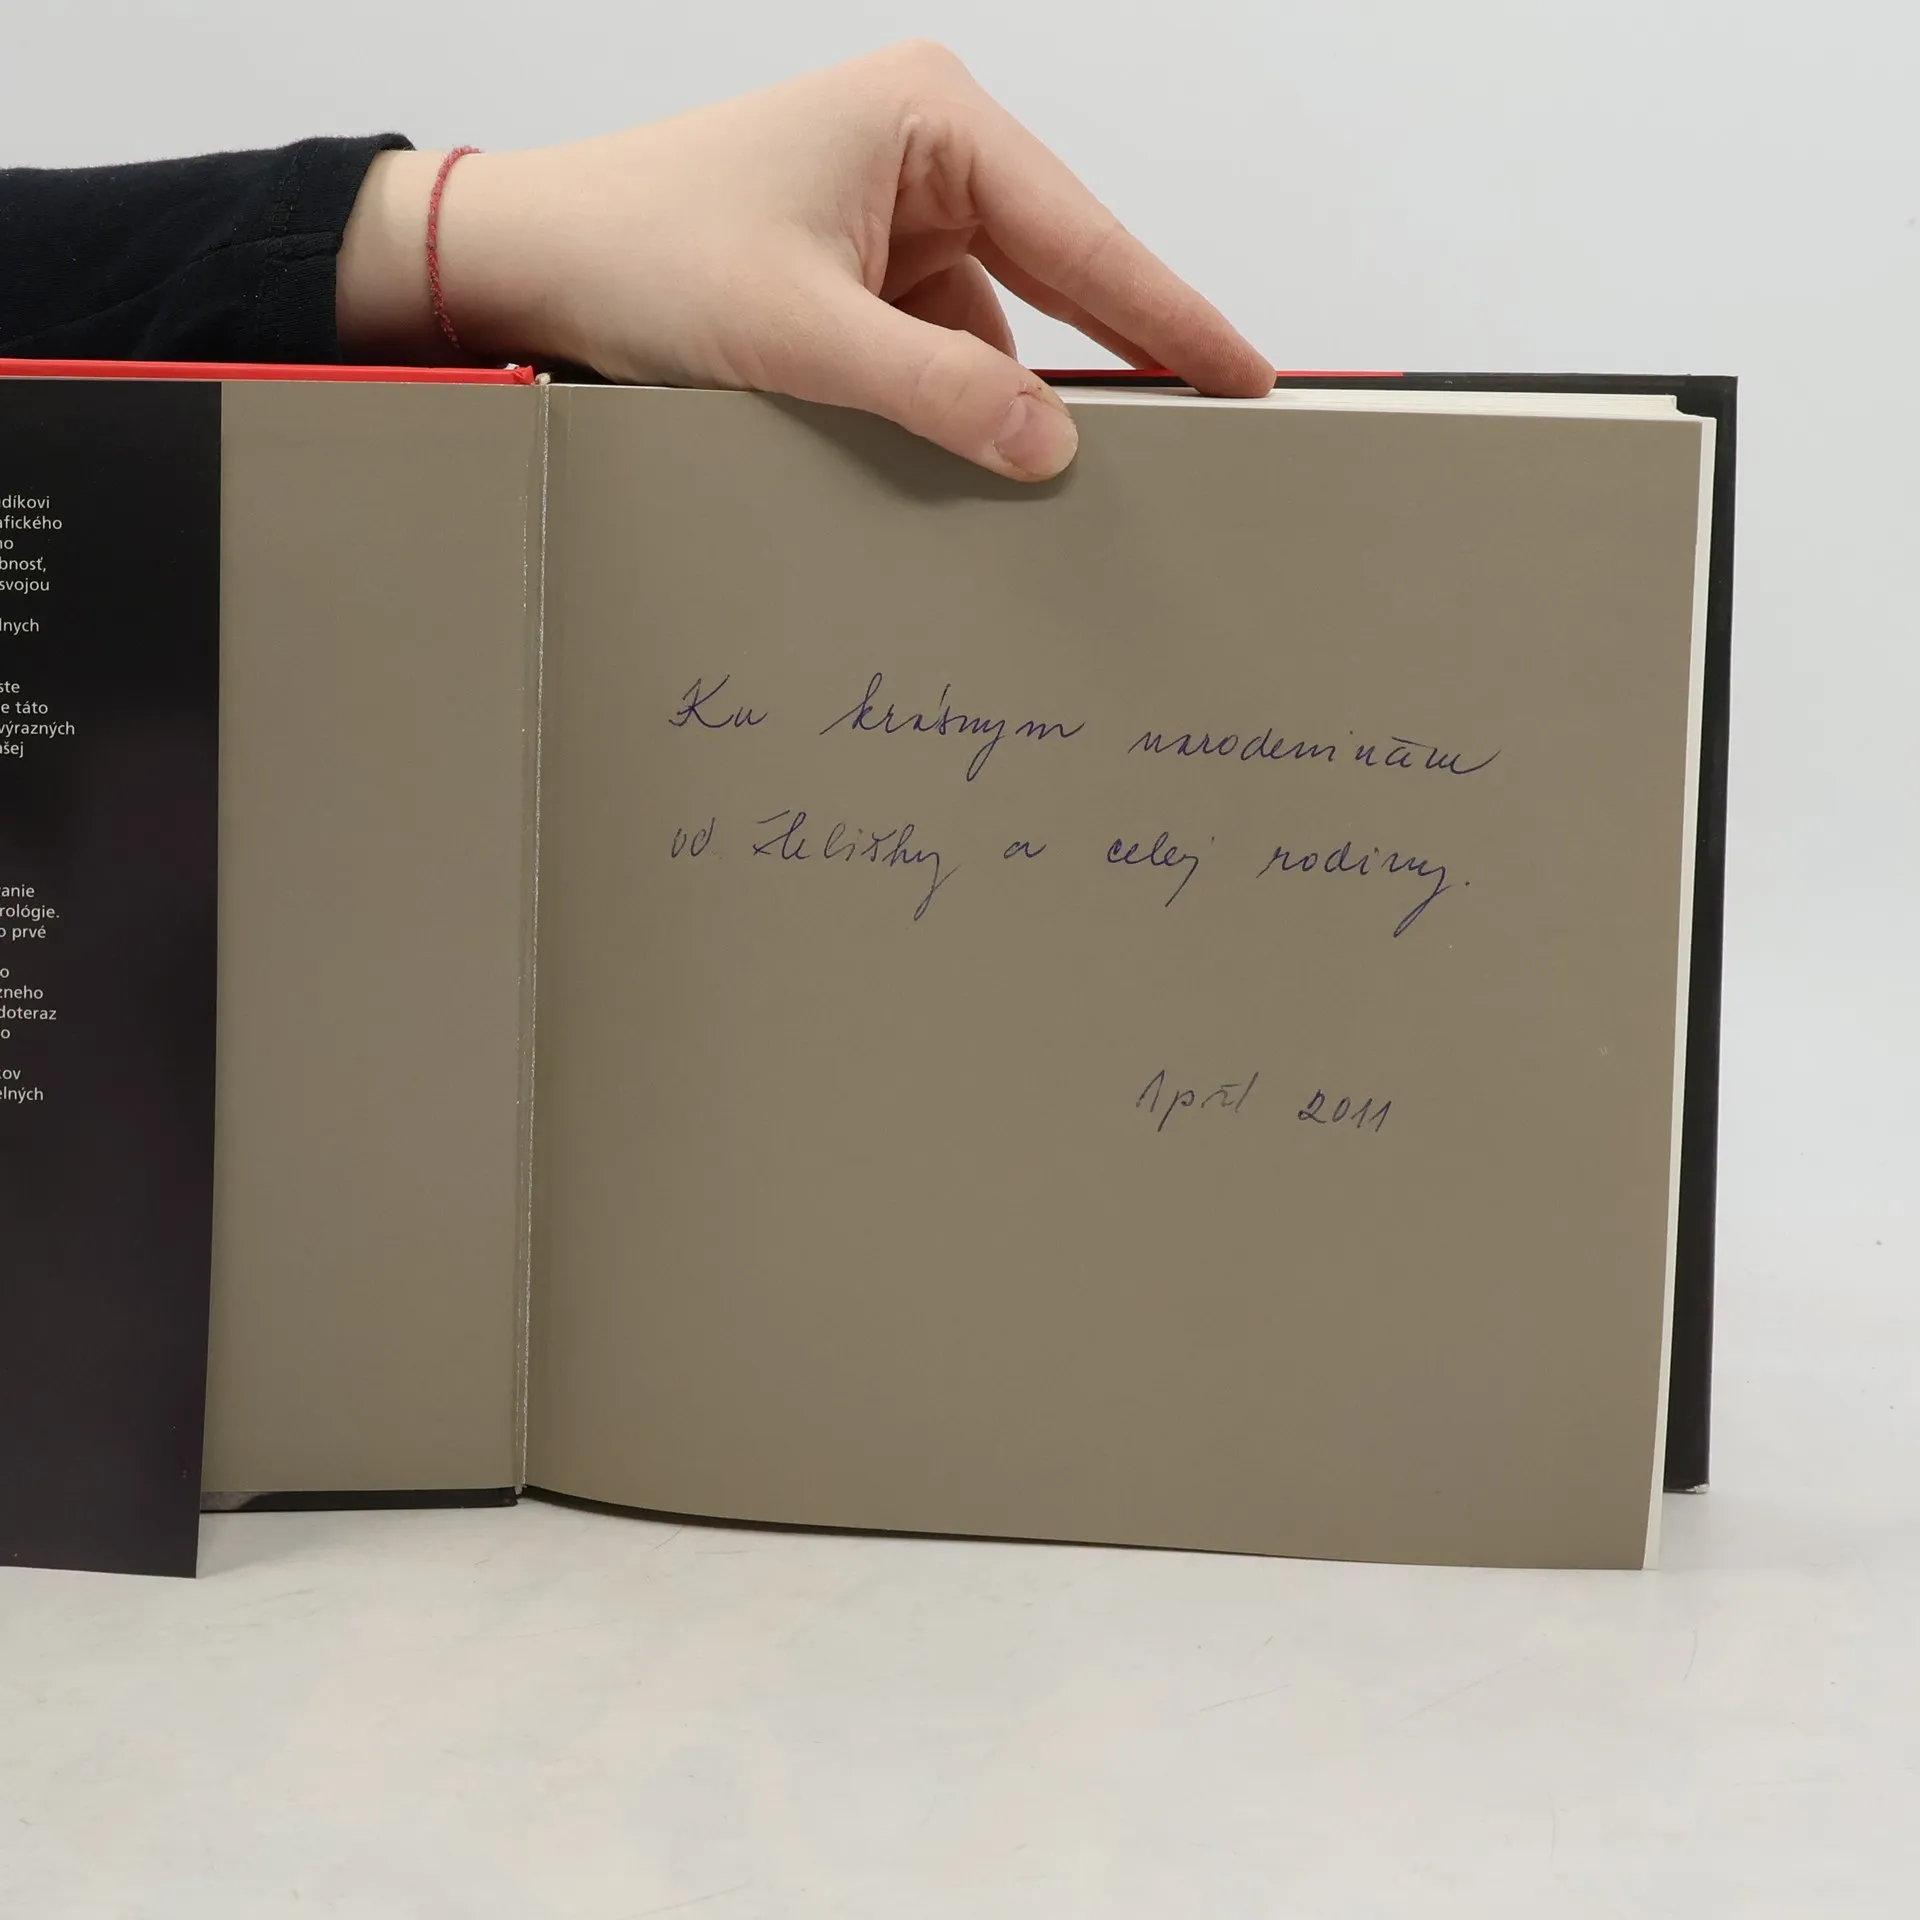 díkovi
afického
ho
bnosť,
svojou
lnych
ste
e táto
výrazných
ašej
anie
rológie.
o prvé
o
zneho
doteraz
o
kov
elných
Ku krásnym narodeninám
od a celej rodiny.
Apríl 2011